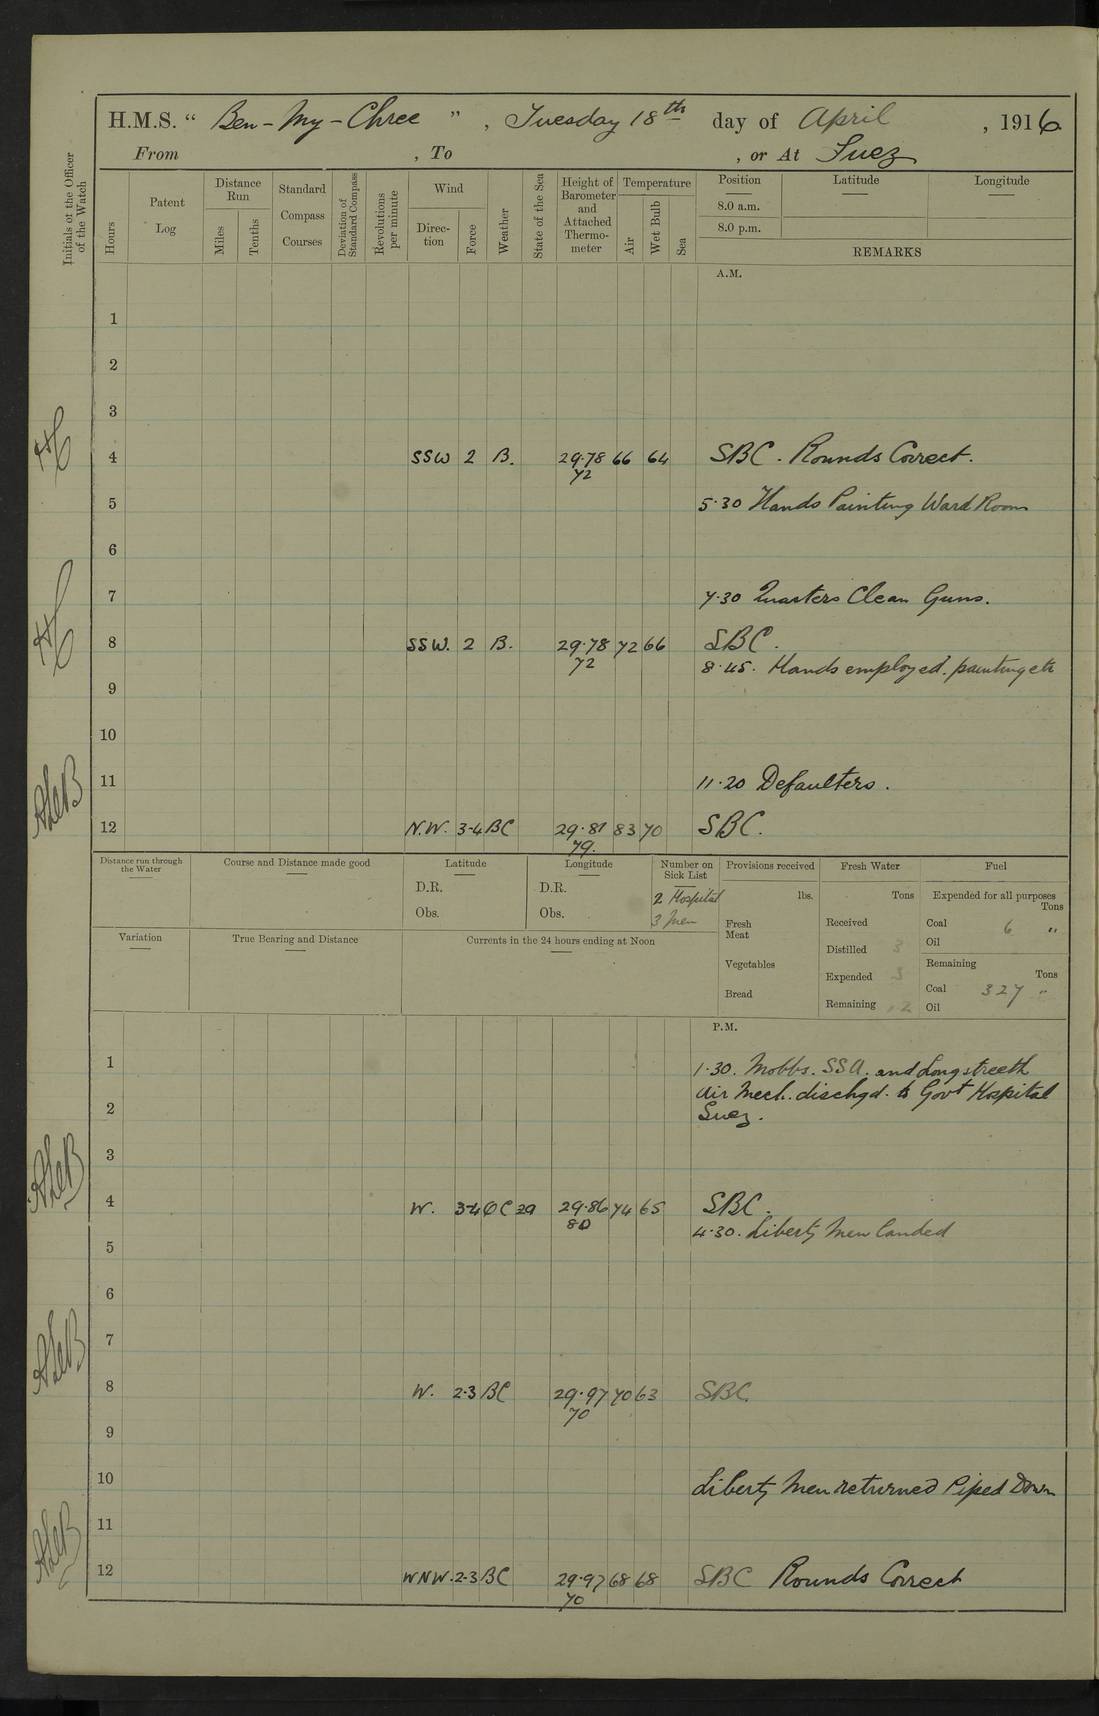 H.M.S. " Ben-My-Chree ", Tuesday 18th day of April, 1916
From , To , or At Suez
Initials of the Officer of the Watch
Hours
Patent Log
Distance Run
Miles
Tenths
Standard Compass Courses
Deviation of Standard Compass
Revolutions per minute
Wind
Direction
Force
Weather
State of the Sea
Height of Barometer and Attached Thermometer
Temperature
Air
Wet Bulb
Sea
Position Latitude Longitude
8.0 a.m.
8.0 p.m.
REMARKS
A.M.
1
2
3
4 SSW 2 B. 29.78 66 64 SBC. Rounds Correct.
72
5 5.30 Hands Painting Ward Room
6
7 7.30 Quarters Clean Guns.
8 SSW. 2 B. 29.78 72 66 SBC.
72 8.45. Hands employed. painting etc
9
10
11 11.20 Defaulters.
12 N.W. 3-4 BC 29.81 83 70 SBC.
79.
Distance run through the Water
Course and Distance made good
Latitude
D.R.
Obs.
Longitude
D.R.
Obs.
Number on Sick List
2 Hospital
3 Men
Provisions received
lbs.
Fresh Meat
Vegetables
Bread
Fresh Water
Tons
Received
Distilled 3
Expended 3
Remaining
Fuel
Expended for all purposes
Tons
Coal 6 "
Oil
Remaining
Tons
Coal 327 "
Oil
Variation
True Bearing and Distance
Currents in the 24 hours ending at Noon
P.M.
1 1.30. Mobbs. SSA. and Longstreeth
Air Mech. dischgd. to Govt Hospital
2 Suez.
3
4 W. 3-4 OC 29.86 74 65 SBC.
80 4.30. Liberty Men landed
5
6
7
8 W. 2-3 BC 29.97 70 63 SBC
70
9
10 Liberty Men returned Piped Down
11
12 WNW. 2-3 BC 29.97 68 68 SBC Rounds Correct
70